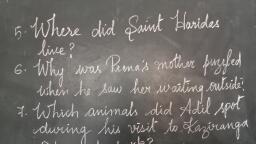 5. Where did Saint Haridas
live?
6. Why was Prerna's mother puzzled
when he saw her waiting outside?
7. Which animals did Adil spot
during his visit to Kaziranga